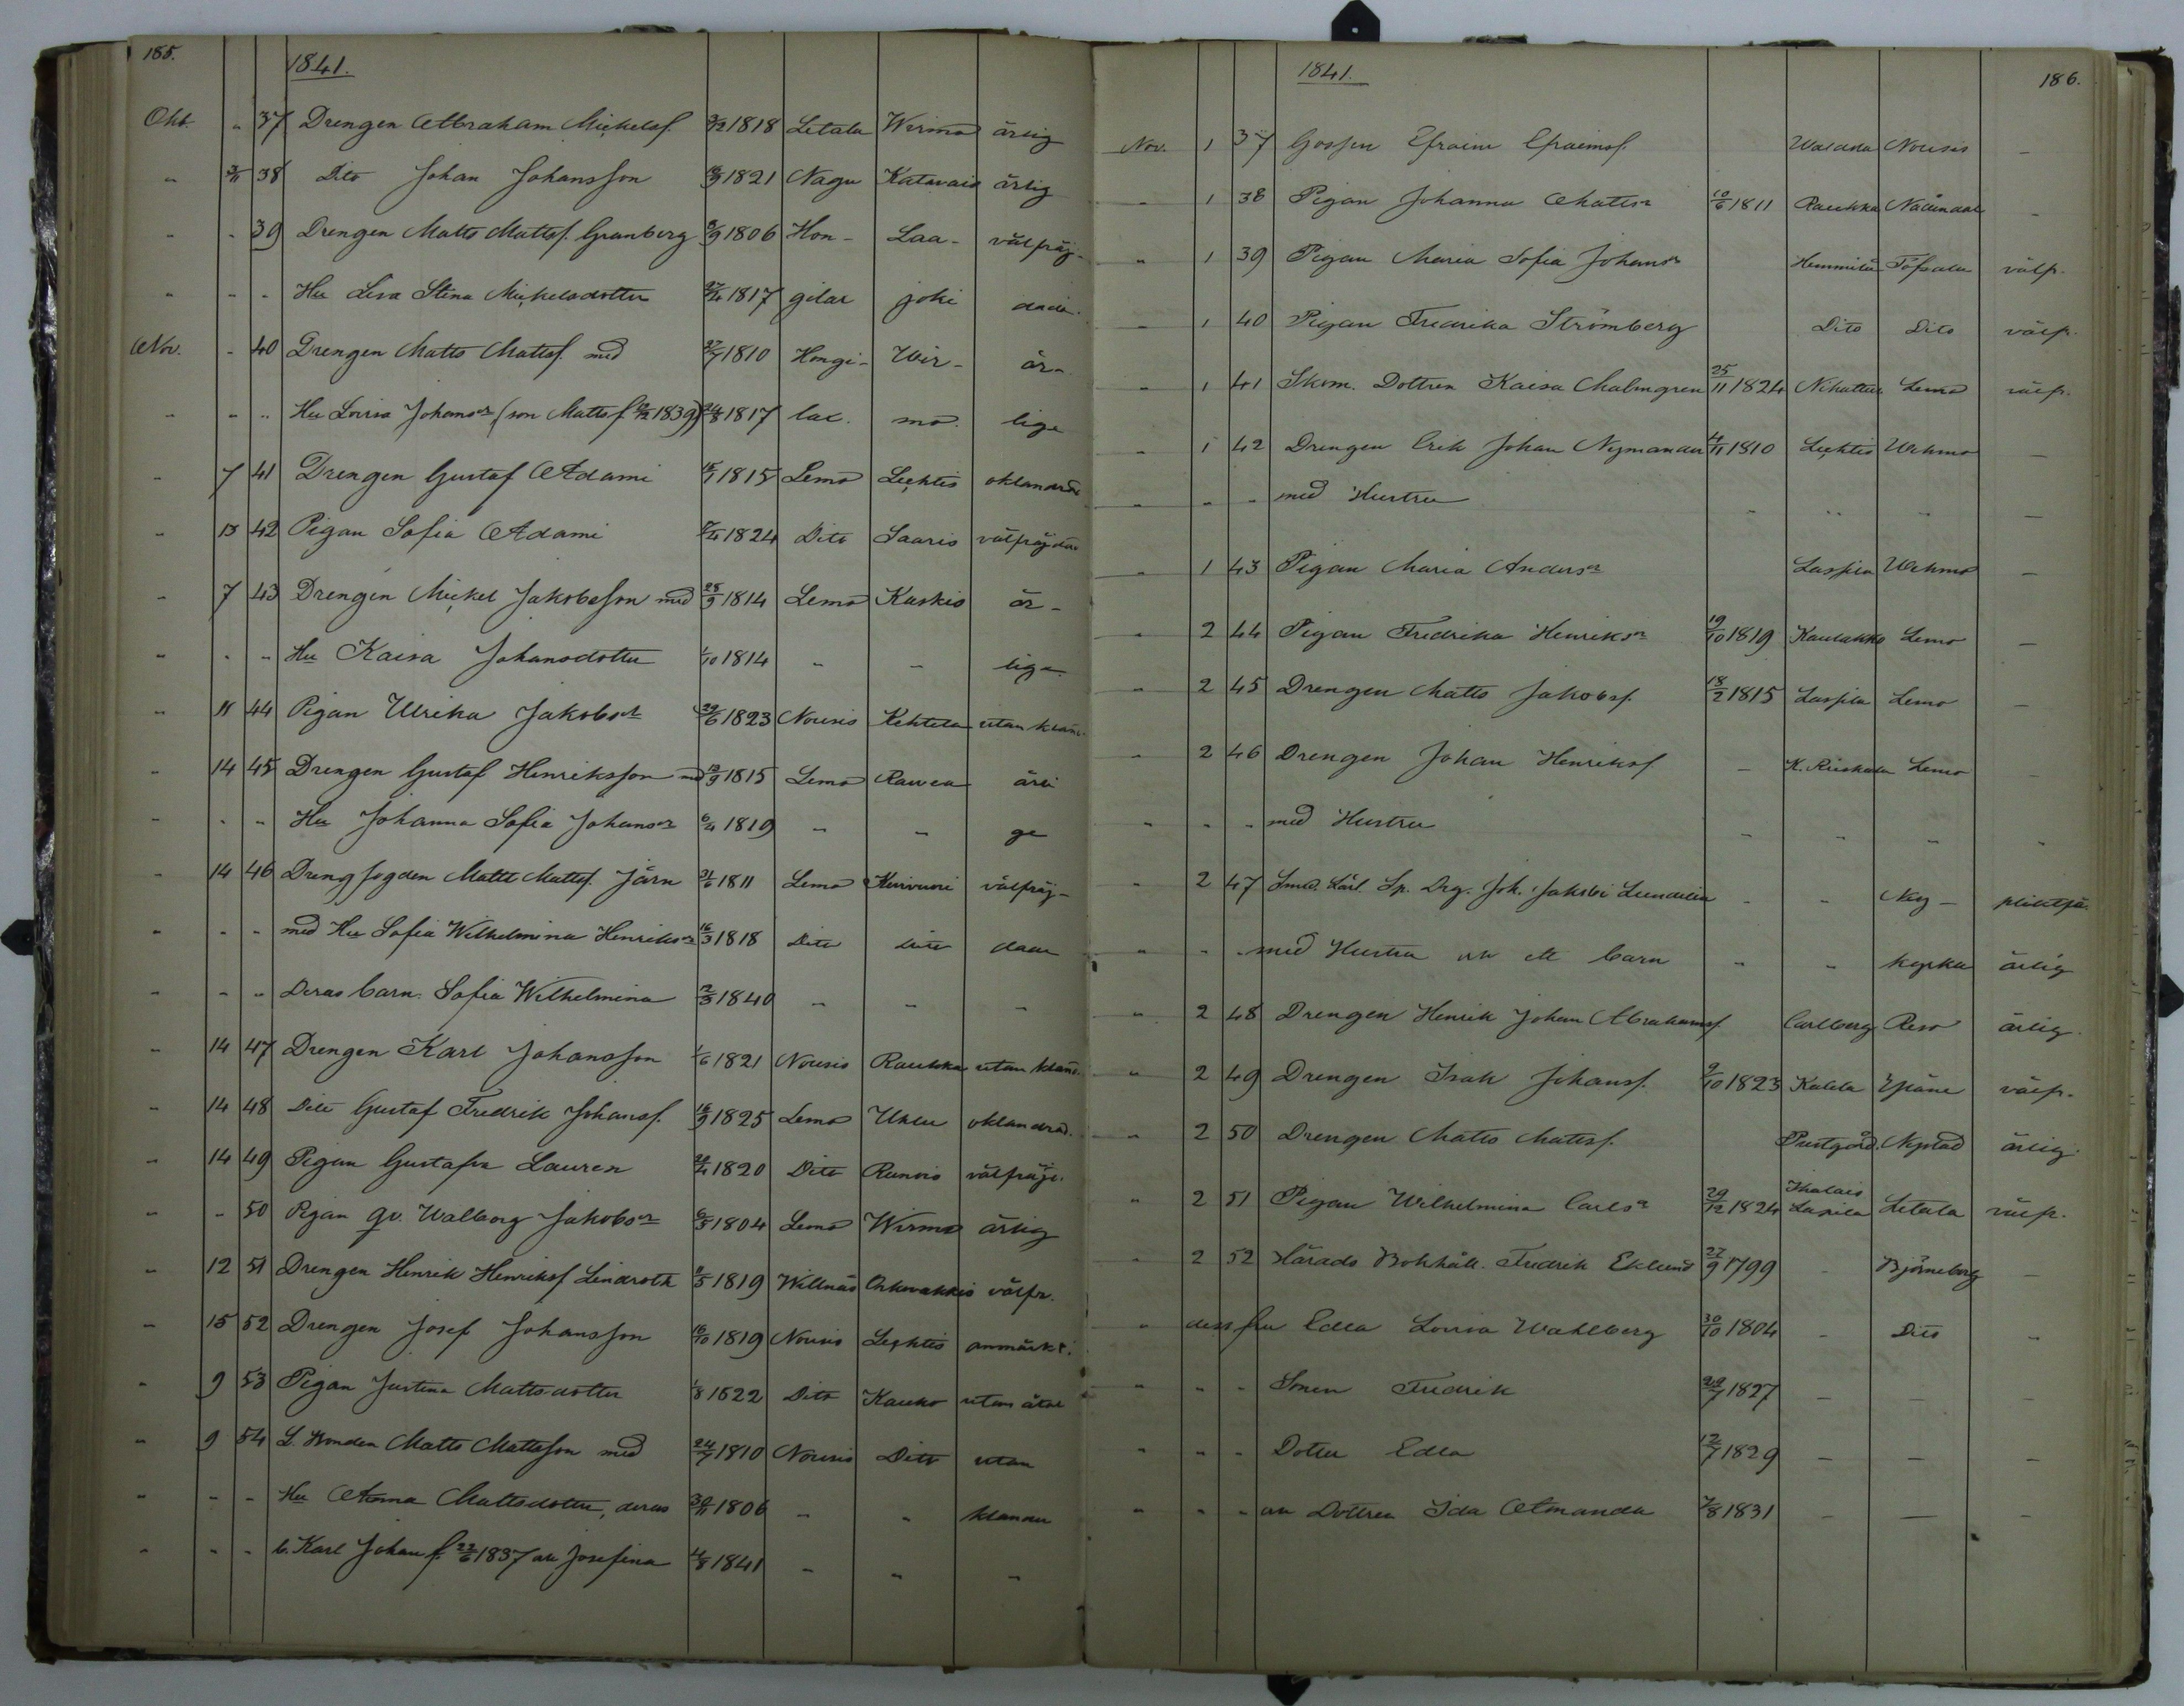 185.
1841.
Okt. " 37 Drengen Abraham Mickelsf. 3/12 1818 Letala Wirmo ärlig
" 38 Dito Johan Johansson 1821 Nagu Katavais ärlig
" " 39 Drengen Matts Mattsf. Granberg 1806 Hon- Laa- välfräj-
" " " Hu Lisa Stina Mickelsdotter 1817 gilax joki dade.
Nov. " 40 Drengen Matts Mattsf. med 27/7 1810 Hongi- Wir- är-
" " " Hu Lovisa Johansdr (son Matts f. 1839) 24/8 1817 lax. mo. lige
" 7 41 Drengen Gustaf Adami 1815 Lemo Lechtis oklandrad
" 13 42 Pigan Sofia Adami 1824 Dito Saaris välfräjdad
" 7 43 Drengen Mickel Jakobsson med 25/9 1814 Lemo Kaskis är-
" " " Hu Kaisa Johansdotter 1/10 1814 " " lige
" 11 44 Pigan Ulrika Jakobsdr 29/6 1823 Nousis Kehtela utan kland.
" 14 45 Drengen Gustaf Henriksson med 1815 Lemo Rawea ärli
" " " Hu Johanna Sofia Johansdr 6/4 1819 " " ge
" 14 46 Drengfogden Matts Mattsf. Järn 21/6 1811 Lemo Kuivuori välfräj-
" " " med Hu Sofia Wilhelmina Henriksdr 16/3 1818 Dito dito dade
" " " Deras barn. Sofia Wilhelmina 2/3 1840 " " "
" 14 47 Drengen Karl Johansson 1/6 1821 Nousis Raukka utan kland.
" 14 48 Dito Gustaf Fredrik Johansf. 1825 Lemo oklandrad.
" 14 49 Pigan Gustafva Lauren 1820 Dito Runois välfräje.
" " 50 Pigan qv. Walborg Jakobsdr 1804 Lemo Wirmo ärlig
" 12 51 Drengen Henrik Henriksf Lindroth 1819 Willnäs välfr.
" 15 52 Drengen Josef Johansson 16/10 1819 Nousis Lechtis anmärkt.
" 9 53 Pigan Justina Mattsdotter 1/8 1822 Dito Kauko utan åtal
" 9 54 L. Bonden Matts Mattsson med 24/7 1810 Nousis Dito utan
" " " Hu Anna Mattsdotter, deras 30/11 1806 " " klander
" " " b. Karl Johan f. 22/6 1837 av Josefina 4/8 1841 " " "
1841.
186.
Nov. 1 37 Gossen Efraim Efraimsf. Nousis –
" 1 38 Pigan Johanna Mattsdr 10/6 1811 Raukka Nådendal –
" 1 39 Pigan Maria Sofia Johansdr Hemmilä Töfsala välf.
" 1 40 Pigan Fredrika Strömberg Dito Dito välf.
" 1 41 Skom. Dottren Kaisa Malmgren 25/11 1824 Nihattula Lemo välf.
" 1 42 Drengen Erik Johan Nymander 4/11 1810 Lechtis Wehmo –
" " " med Hustru " " " –
" 1 43 Pigan Maria Andersdr Laspila Wehmo –
" 2 44 Pigan Fredrika Henriksdr 19/10 1819 Kaulakko Lemo –
" 2 45 Drengen Matts Jakobsf. 18/2 1815 Laspila Lemo –
" 2 46 Drengen Johan Henriksf. – K. Ruskala Lemo –
" " " med Hustru – " – "
" 2 47 Smed. Lärl. Sp. Drg. Joh. Jakobi Lundelin " " Ny- pliktfri
" " " med Hustru och ett barn " " kyrka ärlig
" 2 48 Drengen Henrik Johan Abrahamsf. Carlberg Reso ärlig.
" 2 49 Drengen Isak Johansf. 9/10 1823 Kalela Ypäne välf.
" 2 50 Drengen Matts Mattsf. Prestgård. Nystad ärlig
" 2 51 Pigan Wilhelmina Carlsdr 29/12 1824 Ihalais Laxila Letala välf.
" 2 52 Härads Bokhåll. Fredrik Eklund 27/9 1799 – Björneborg –
" dess fru Edla Lovisa Wahlberg 30/10 1804 – Dito "
" " " Sonen Fredrik 29/7 1827 – – –
" " " Dotter Edla 12/7 1829 – – –
" " " av Dottren Ida Amanda 7/8 1831 – – –